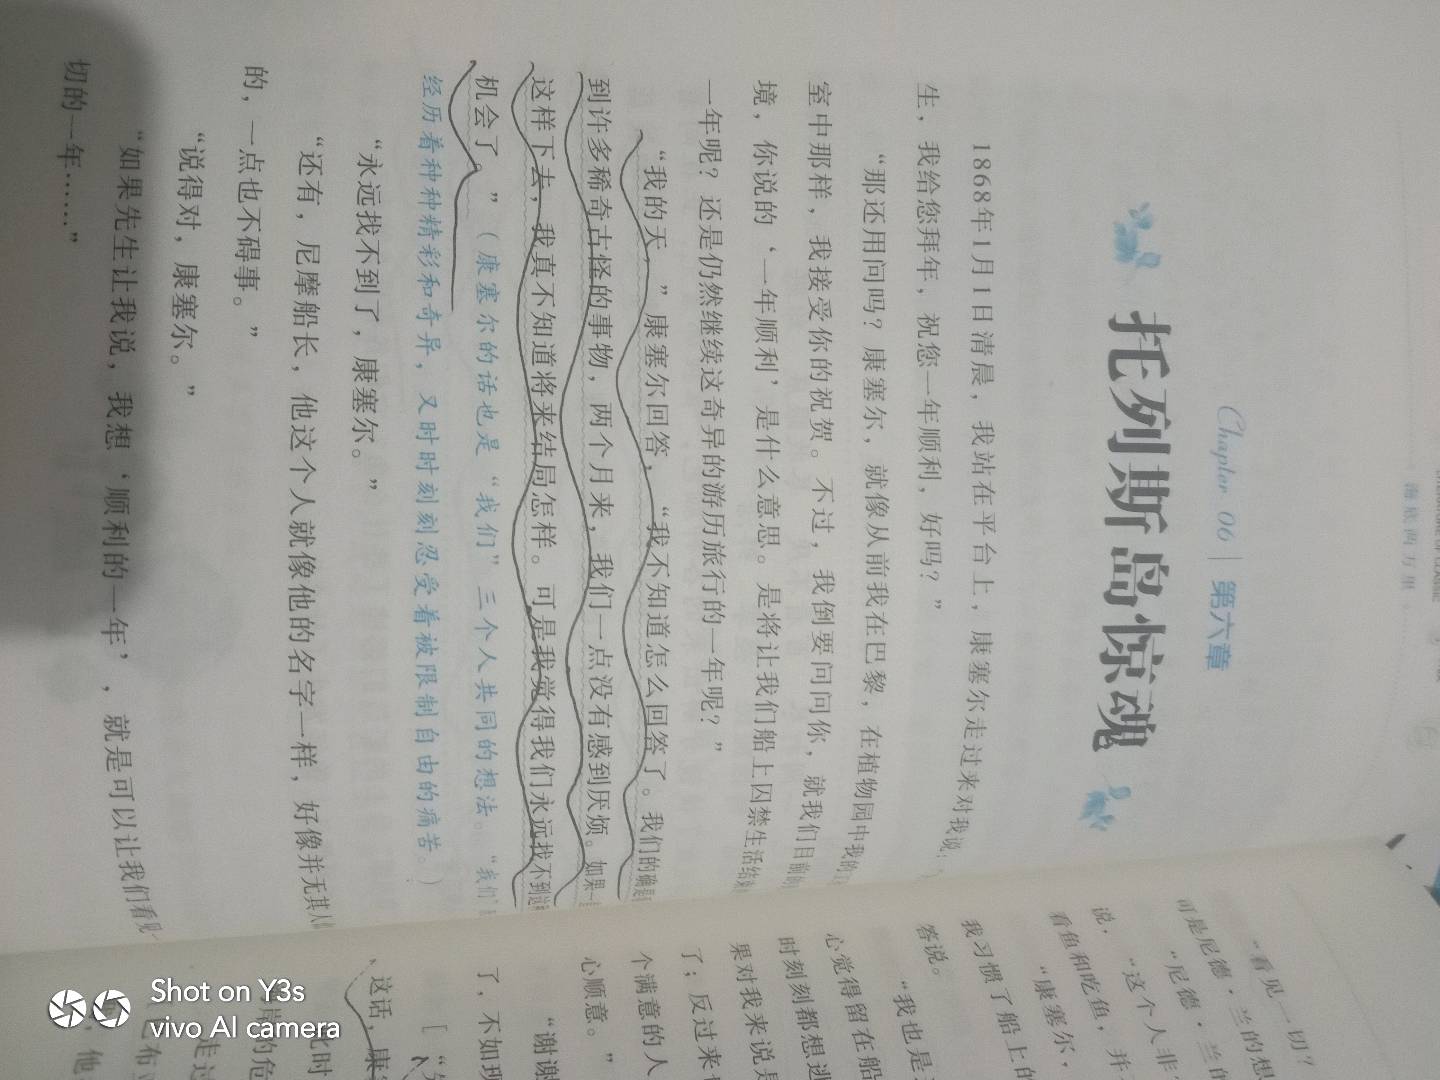 海底两万里
Chapter 06 | 第六章
托列斯岛惊魂
1868年1月1日清晨，我站在平台上，康塞尔走过来对我说：
生，我给您拜年，祝您一年顺利，好吗？”
“那还用问吗？康塞尔，就像从前我在巴黎，在植物园中我的
室中那样，我接受你的祝贺。不过，我倒要问问你，就我们目前的
境，你说的‘一年顺利’是什么意思。是将让我们船上囚禁生活结束
一年呢？还是仍然继续这奇异的游历旅行的一年呢？”
“我的天，”康塞尔回答，“我不知道怎么回答了。我们的确是
到许多稀奇古怪的事物，两个月来，我们一点没有感到厌烦。如果一
这样下去，我真不知道将来结局怎样。可是我觉得我们永远找不到这
机会了。”（康塞尔的话也是“我们”三个人共同的想法。“我们”
经历着种种精彩和奇异，又时时刻刻忍受着被限制自由的痛苦。）
“永远找不到了，康塞尔。”
“还有，尼摩船长，他这个人就像他的名字一样，好像并无其人
的，一点也不碍事。”
“说得对，康塞尔。”
“如果先生让我说，我想‘顺利的一年’，就是可以让我们看见
切的一年……”
“看见一切？
可是尼德·兰的想
“尼德·兰的
说，“这个人非
看鱼和吃鱼，并
“康塞尔，
我习惯了船上的
答说。
“我也是
心觉得留在船
时刻刻都想逃
果对我来说是
了；反过来
个满意的人
心顺意。”
“谢谢
了，不如现
［“先
这话，康
此时
的危
布
走过
，他
Shot on Y3s
vivo AI camera